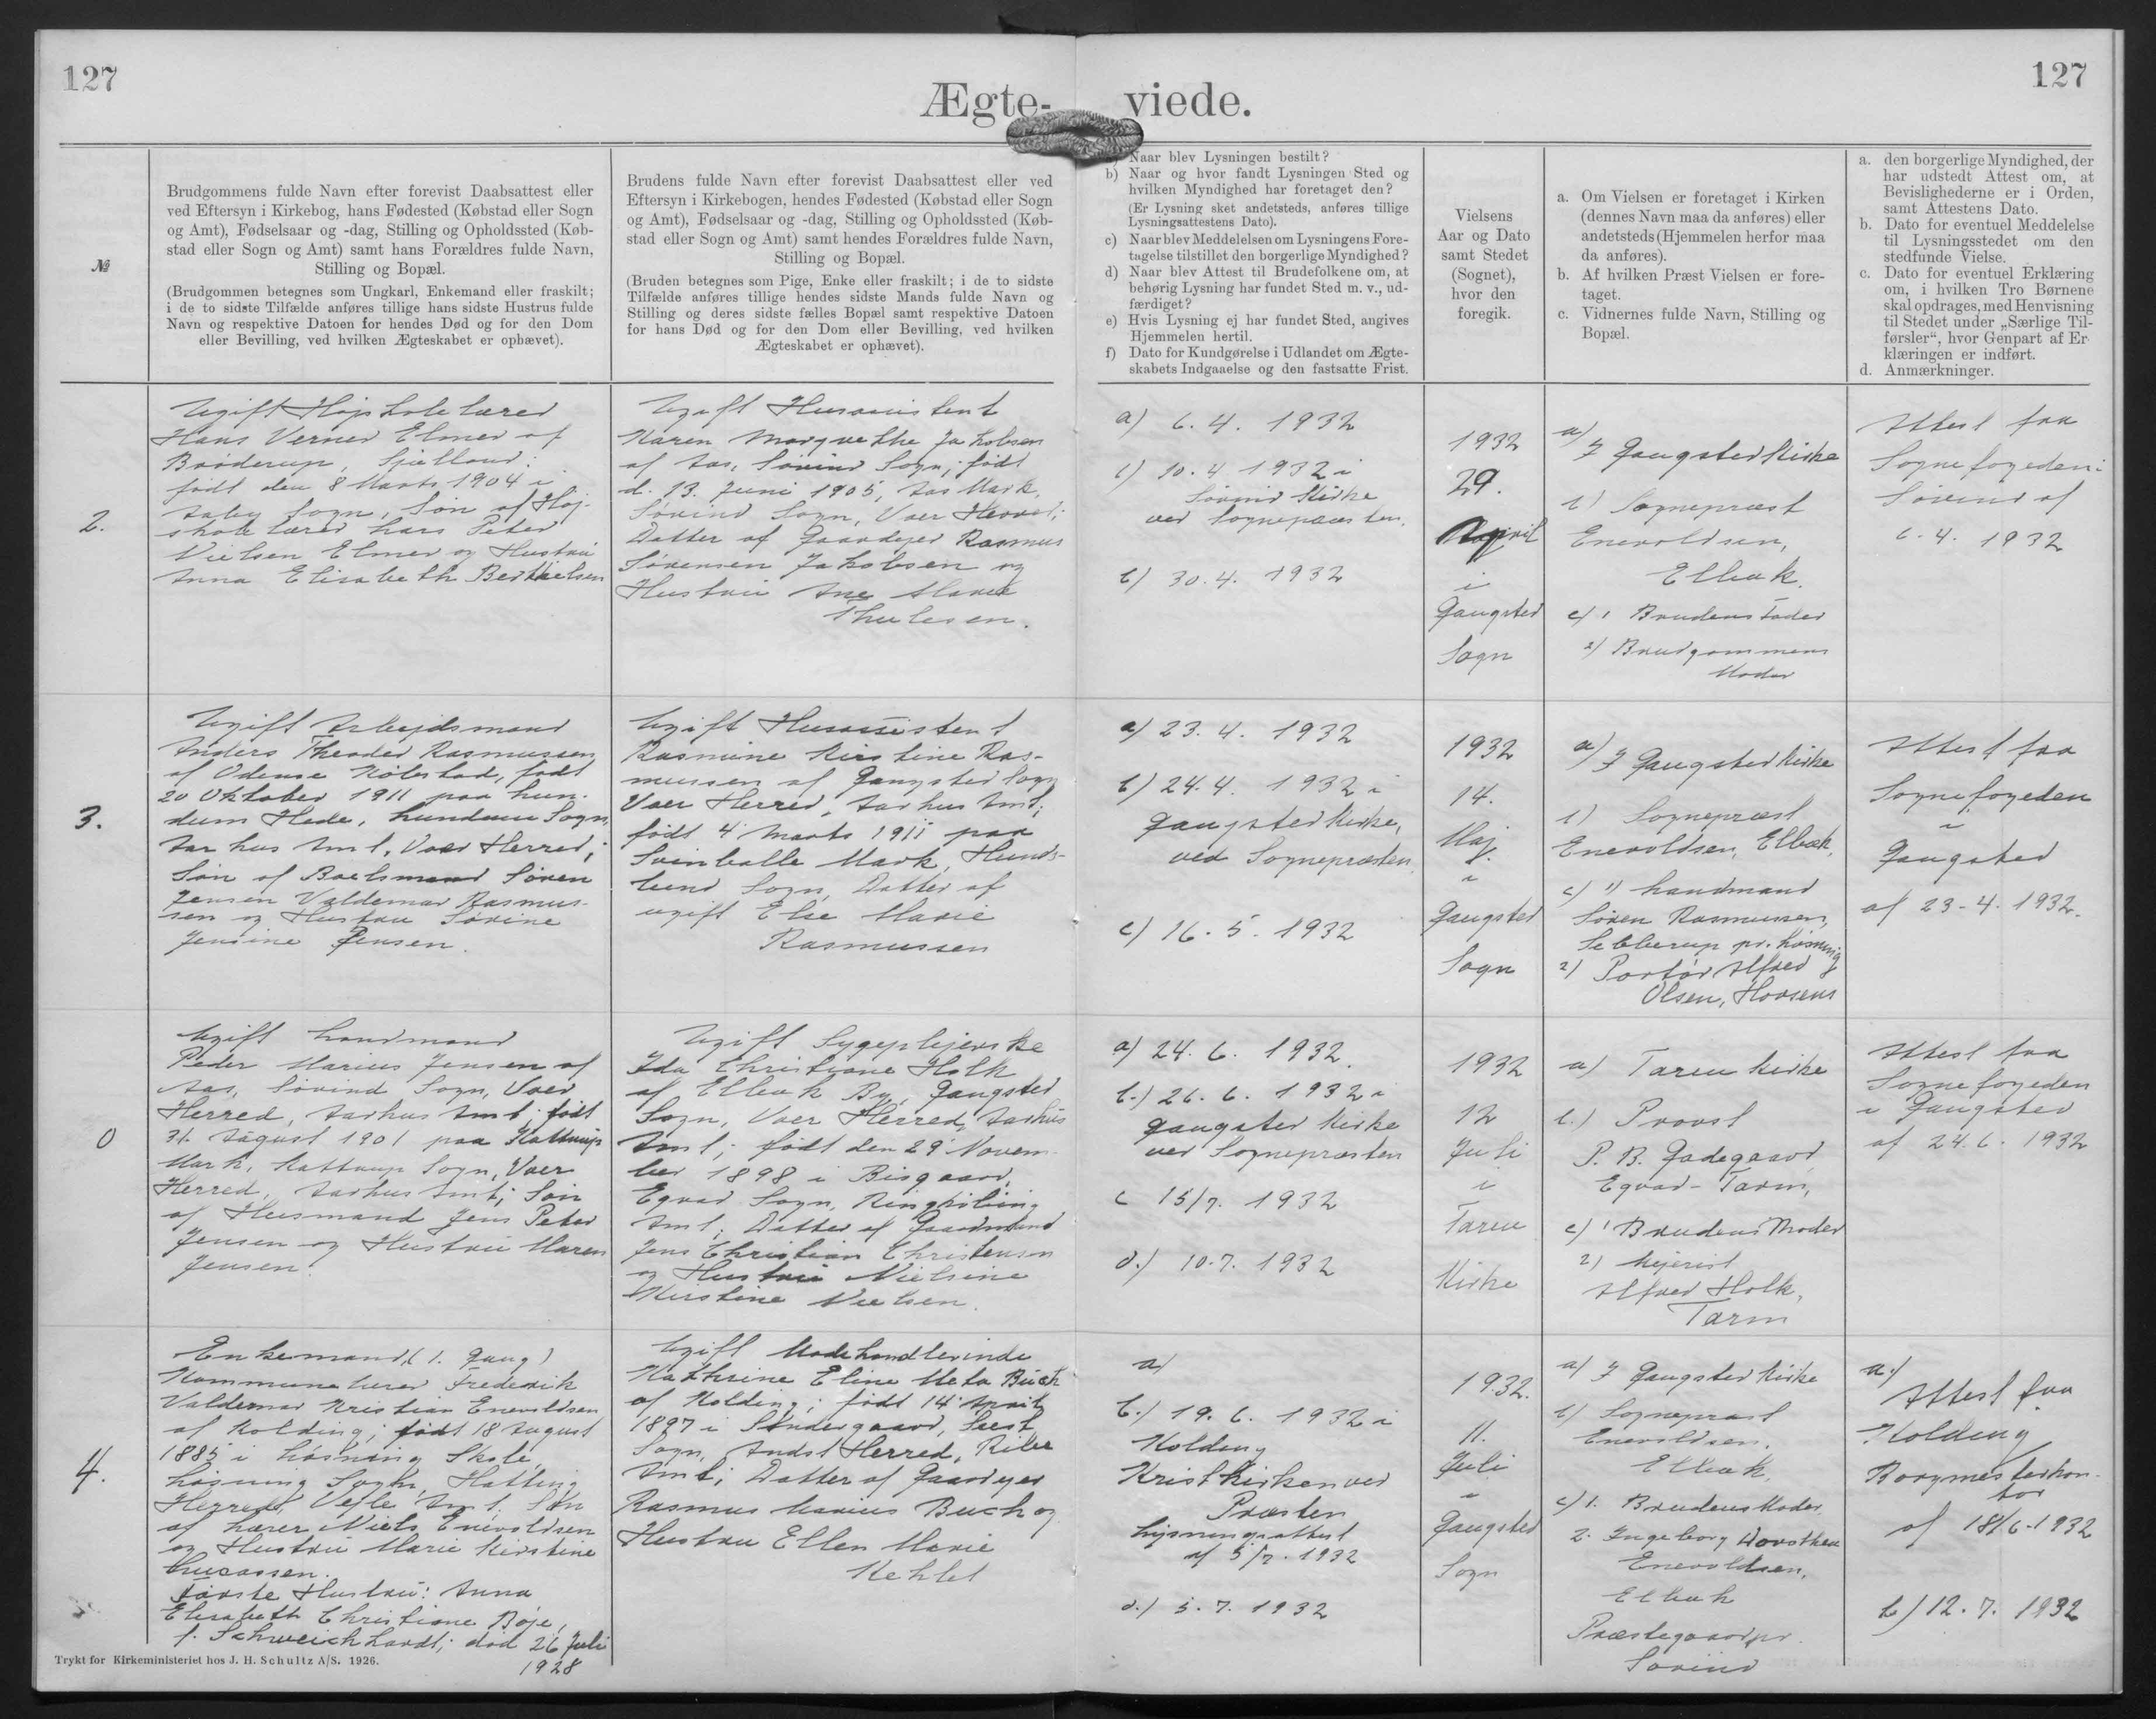 127
127
Ægte- viede.
№
Brudgommens fulde Navn efter forevist Daabsattest eller
ved Eftersyn i Kirkebog, hans Fødested (Købstad eller Sogn
og Amt), Fødselsaar og -dag, Stilling og Opholdssted (Køb-
stad eller Sogn og Amt) samt hans Forældres fulde Navn,
Stilling og Bopæl.
(Brudgommen betegnes som Ungkarl, Enkemand eller fraskilt;
i de to sidste Tilfælde anføres tillige hans sidste Hustrus fulde
Navn og respektive Datoen for hendes Død og for den Dom
eller Bevilling, ved hvilken Ægteskabet er ophævet).
Brudens fulde Navn efter forevist Daabsattest eller ved
Eftersyn i Kirkebogen, hendes Fødested (Købstad eller Sogn
og Amt), Fødselsaar og -dag, Stilling og Opholdssted (Køb-
stad eller Sogn og Amt) samt hendes Forældres fulde Navn,
Stilling og Bopæl.
(Bruden betegnes som Pige, Enke eller fraskilt; i de to sidste
Tilfælde anføres tillige hendes sidste Mands fulde Navn og
Stilling og deres sidste fælles Bopæl samt respektive Datoen
for hans Død og for den Dom eller Bevilling, ved hvilken
Ægteskabet er ophævet).
a) Naar blev Lysningen bestilt?
b) Naar og hvor fandt Lysningen Sted og
hvilken Myndighed har foretaget den?
(Er Lysning sket andetsteds, anføres tillige
Lysningsattestens Dato).
c) Naar blev Meddelelsen om Lysningens Fore-
tagelse tilstillet den borgerlige Myndighed?
d) Naar blev Attest til Brudefolkene om, at
behørig Lysning har fundet Sted m. v., ud-
færdiget?
e) Hvis Lysning ej har fundet Sted, angives
Hjemmelen hertil.
f) Dato for Kundgørelse i Udlandet om Ægte-
skabets Indgaaelse og den fastsatte Frist.
Vielsens
Aar og Dato
samt Stedet
(Sognet),
hvor den
foregik.
a. Om Vielsen er foretaget i Kirken
(dennes Navn maa da anføres) eller
andetsteds (Hjemmelen herfor maa
da anføres).
b. Af hvilken Præst Vielsen er fore-
taget.
c. Vidnernes fulde Navn, Stilling og
Bopæl.
a. den borgerlige Myndighed, der
har udstedt Attest om, at
Bevislighederne er i Orden,
samt Attestens Dato.
b. Dato for eventuel Meddelelse
til Lysningsstedet om den
stedfundne Vielse.
c. Dato for eventuel Erklæring
om, i hvilken Tro Børnene
skal opdrages, med Henvisning
til Stedet under „Særlige Til-
førsler“, hvor Genpart af Er
klæringen er indført.
d. Anmærkninger.
2.
Ugift Højskolelærer
Hans Verner Elmer af
Brøderup, Sjælland;
født den 8 Marts 1904 i
Taby Sogn, Søn af Høj-
skolelærer Hans Peter
Nielsen Elmer og Hustru
Anna Elisabeth Berthelsen
Ugift Husassistent
Karen Margrethe Jakobsen
af Aas, Søvind Sogn; født
d. 13. Juni 1905, Aas Mark,
Søvind Sogn, Voer Herred;
Datter af Gaardejer Rasmus
Sørensen Jakobsen og
Hustru Ane Marie
Thulesen.
a) 6. 4. 1932
b) 10. 4 1932 i
Søvind Kirke
ved Sognepræsten.
c) 30. 4. 1932
1932
29.
April
i
Gangsted
Sogn
a) I Gangsted Kirke
b) Sognepræst
Enevoldsen,
Elbæk.
c) 1 Brudens Fader
2) Brudgommens
Moder
Attest fra
Sognefogeden i
Søvind af
6. 4. 1932
3.
Ugift Arbejdsmand
Anders Theodor Rasmussen
af Odense Købstad, født
20 Oktober 1911 paa Lun-
dum Hede, Lundum Sogn,
Aarhus Amt, Voer Herred;
Søn af Boelsmand Søren
Jensen Valdemar Rasmus-
sen og Hustru Sørine
Jensine Jensen.
Ugift Husassistent
Rasmine Kirstine Ras-
mussen af Gangsted Sogn
Voer Herred, Aarhus Amt;
født 4 Marts 1911 paa
Svinballe Mark, Hunds-
lund Sogn, Datter af
ugift Else Marie
Rasmussen
a) 23. 4. 1932
b) 24. 4. 1932 i
Gangsted Kirke,
ved Sognepræsten.
c) 16. 5. 1932
1932
14.
Maj
i
Gangsted
Sogn
a) I Gangsted Kirke
b) Sognepræst
Enevoldsen, Elbæk.
c) 1) Landmand
Søren Rasmussen,
Sebberup pr. Løsning
2) Portør Alfred
Olsen, Horsens
Attest fra
Sognefogeden
i
Gangsted
af 23-4. 1932.
0
Ugift Landmand
Peder Marius Jensen af
Aas, Søvind Sogn, Voer
Herred, Aarhus Amt; født
31. August 1901 paa Kattrup
Mark, Kattrup Sogn, Voer
Herred, Aarhus Amt; Søn
af Husmand Jens Peter
Jensen og Hustru Maren
Jensen.
Ugift Sygeplejerske
Ida Christiane Holk
af Elbæk By, Gangsted
Sogn, Voer Herred, Aarhus
Amt; født den 29 Novem-
ber 1898 i Bisgaard,
Egvad Sogn, Ringkøbing
Amt. Datter af Gaardmand
Jens Christian Christensen
og Hustru Nielsine
Kirstine Nielsen.
a) 24. 6. 1932.
b.) 26. 6. 1932 i
Gangsted Kirke
ved Sognepræsten
c 15/7. 1932
d.) 10. 7. 1932
1932
12
Juli
i
Tarm
Kirke
a) Tarm Kirke
b.) Provst
P. B. Gadegaard,
Egvad-Tarm,
c) 1 Brudens Moder
2) Mejerist
Alfred Holk,
Tarm
Attest fra
Sognefogeden
i Gangsted
af 24. 6. 1932
4.
Enkemand (1. Gang)
Kommunelærer Frederik
Valdemar Kristian Enevoldsen
af Kolding; født 18 August
1885 i Løsning Skole,
Løsning Sogn, Hatting
Herred, Vejle Amt. Søn
af Lærer Niels Enevoldsen
og Hustru Marie Kirstine
Lucassen.
Første Hustru: Anna
Elisabeth Christiane Boje,
f. Schweichhardt; død 26 Juli
1928
Ugift Modehandlerinde
Kathrine Eline Meta Buch
af Kolding; født 14 April
1897 i Søndergaard, Seest
Sogn, Andst Herred, Ribe
Amt; Datter af Gaardejer
Rasmus Marius Buch og
Hustru Ellen Marie
Kehlet
a)
b.) 19. 6. 1932 i
Kolding
Kristkirken ved
Præsten
Lysningsattest
af 5/7. 1932
d.) 5. 7. 1932
1932.
11.
Juli
i
Gangsted
Sogn
a) I Gangsted Kirke
b) Sognepræst
Enevoldsen,
Elbæk.
c) 1. Brudens Moder
2. Ingeborg Dorothea
Enevoldsen,
Elbæk
Præstegaard pr.
Søvind
a.)
Attest fra
Kolding
Borgmesterkon-
tor
af 18/6-1932
b) 12. 7. 1932
Trykt for Kirkeministeriet hos J. H. Schultz A/S. 1926.